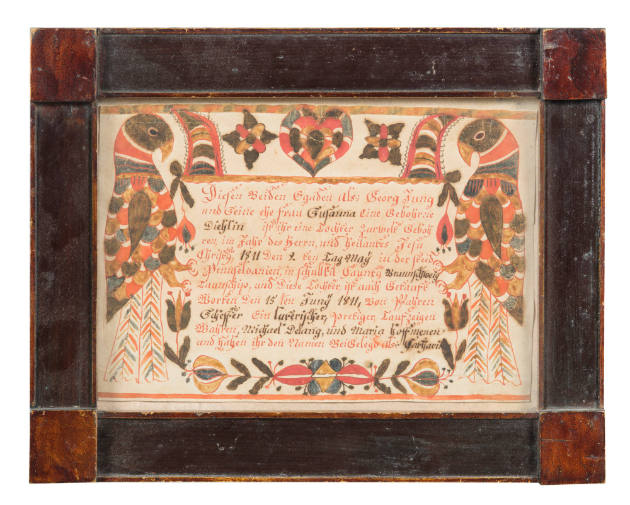 Diesen Beiden Egaden als Georg Jung
und Seine ehe frau Susanna Eine Gebohrne
Diehlin ist ihr eine Tochter zur welt Geboh
ren im Jahr des Herrn und heilandes Jesu
Christy 1811 Den 2. ten Tag May in der steid
Pennsylvanien, in schulkil Caunty Braunschweig
Taunschip, und Diese Tochter ist auch Getauft
Worten Den 15 ten Juny 1811, Von Pfahren
Schefer Ein Luterischer, preeiger, Taufzeigen
Wahren, Michael Delang, und Maria Hoffmenen
und haben ihr den Namen Bei Gelegd als